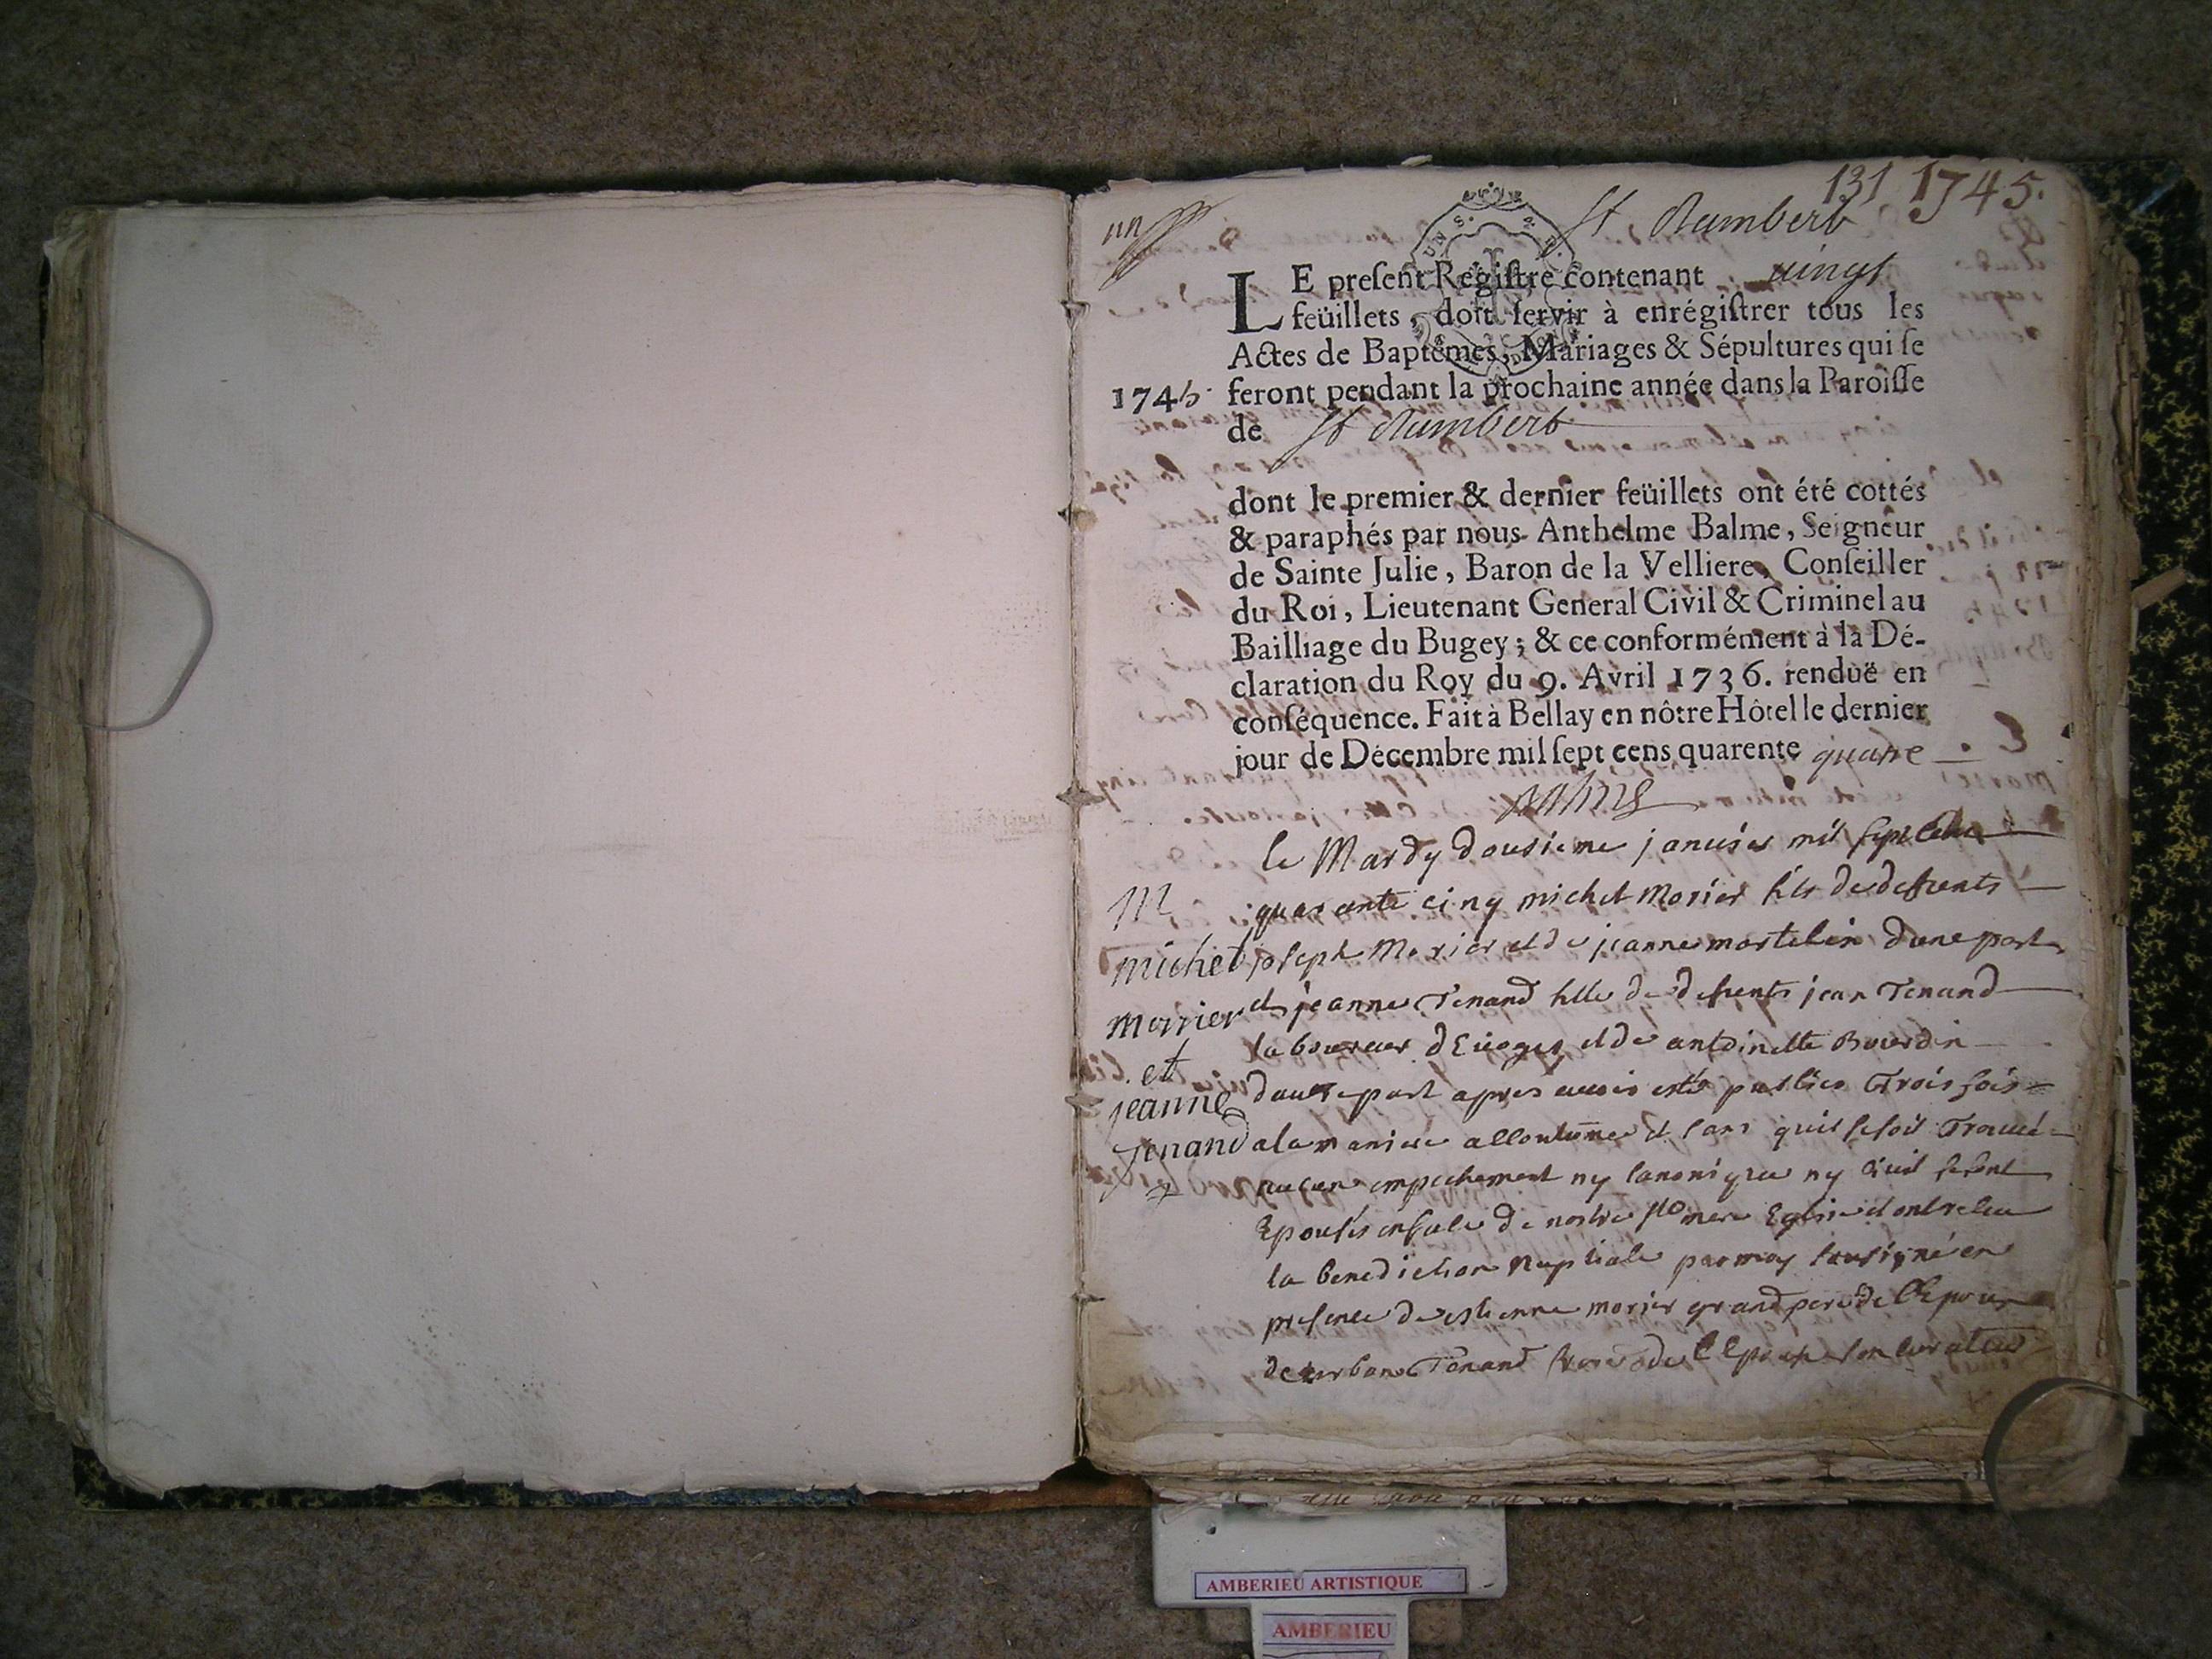 un
131 1745.
St Rambert
LE preſent Regiſtre contenant vingt
feüillets, doit ſervir à enrégiſtrer tous les
Actes de Baptêmes, Mariages & Sépultures qui ſe
1745. feront pendant la prochaine année dans la Paroiſſe
de St Rambert
dont le premier & dernier feüillets ont été cottés
& paraphés par nous Anthelme Balme, Seigneur
de Sainte Julie, Baron de la Velliere, Conſeiller
du Roi, Lieutenant General Civil & Criminel au
Bailliage du Bugey; & ce conformément à la Dé-
claration du Roy du 9. Avril 1736. renduë en
conſéquence. Fait à Bellay en nôtre Hôtel le dernier
jour de Décembre mil ſept cens quarente quatre
Balme
M
michel
morrier
et
jeanne
tenand
le Mardy dousieme janvier mil sept cent
quarante cinq michel Morier fils de defunts
joseph Morier et de jeanne martelin d'une part
et jeanne Tenand fille de defunts jean Tenand
laboureur d'Evoges et de antoinette Bourdin
dautre part apres avoir esté publies Trois fois
a la maniere accoutumee et sans quil se soit Trouvé
aucun empechement ny canonique ny civil se sont
Epousés en face de nostre ste mere Eglise et ont receu
la benediction Nuptiale par moy sousigné en
presence de estienne morier grand pere de l'Epoux
de urban Tenand frere de l'Epouse son curateur
AMBERIEU ARTISTIQUE
AMBERIEU